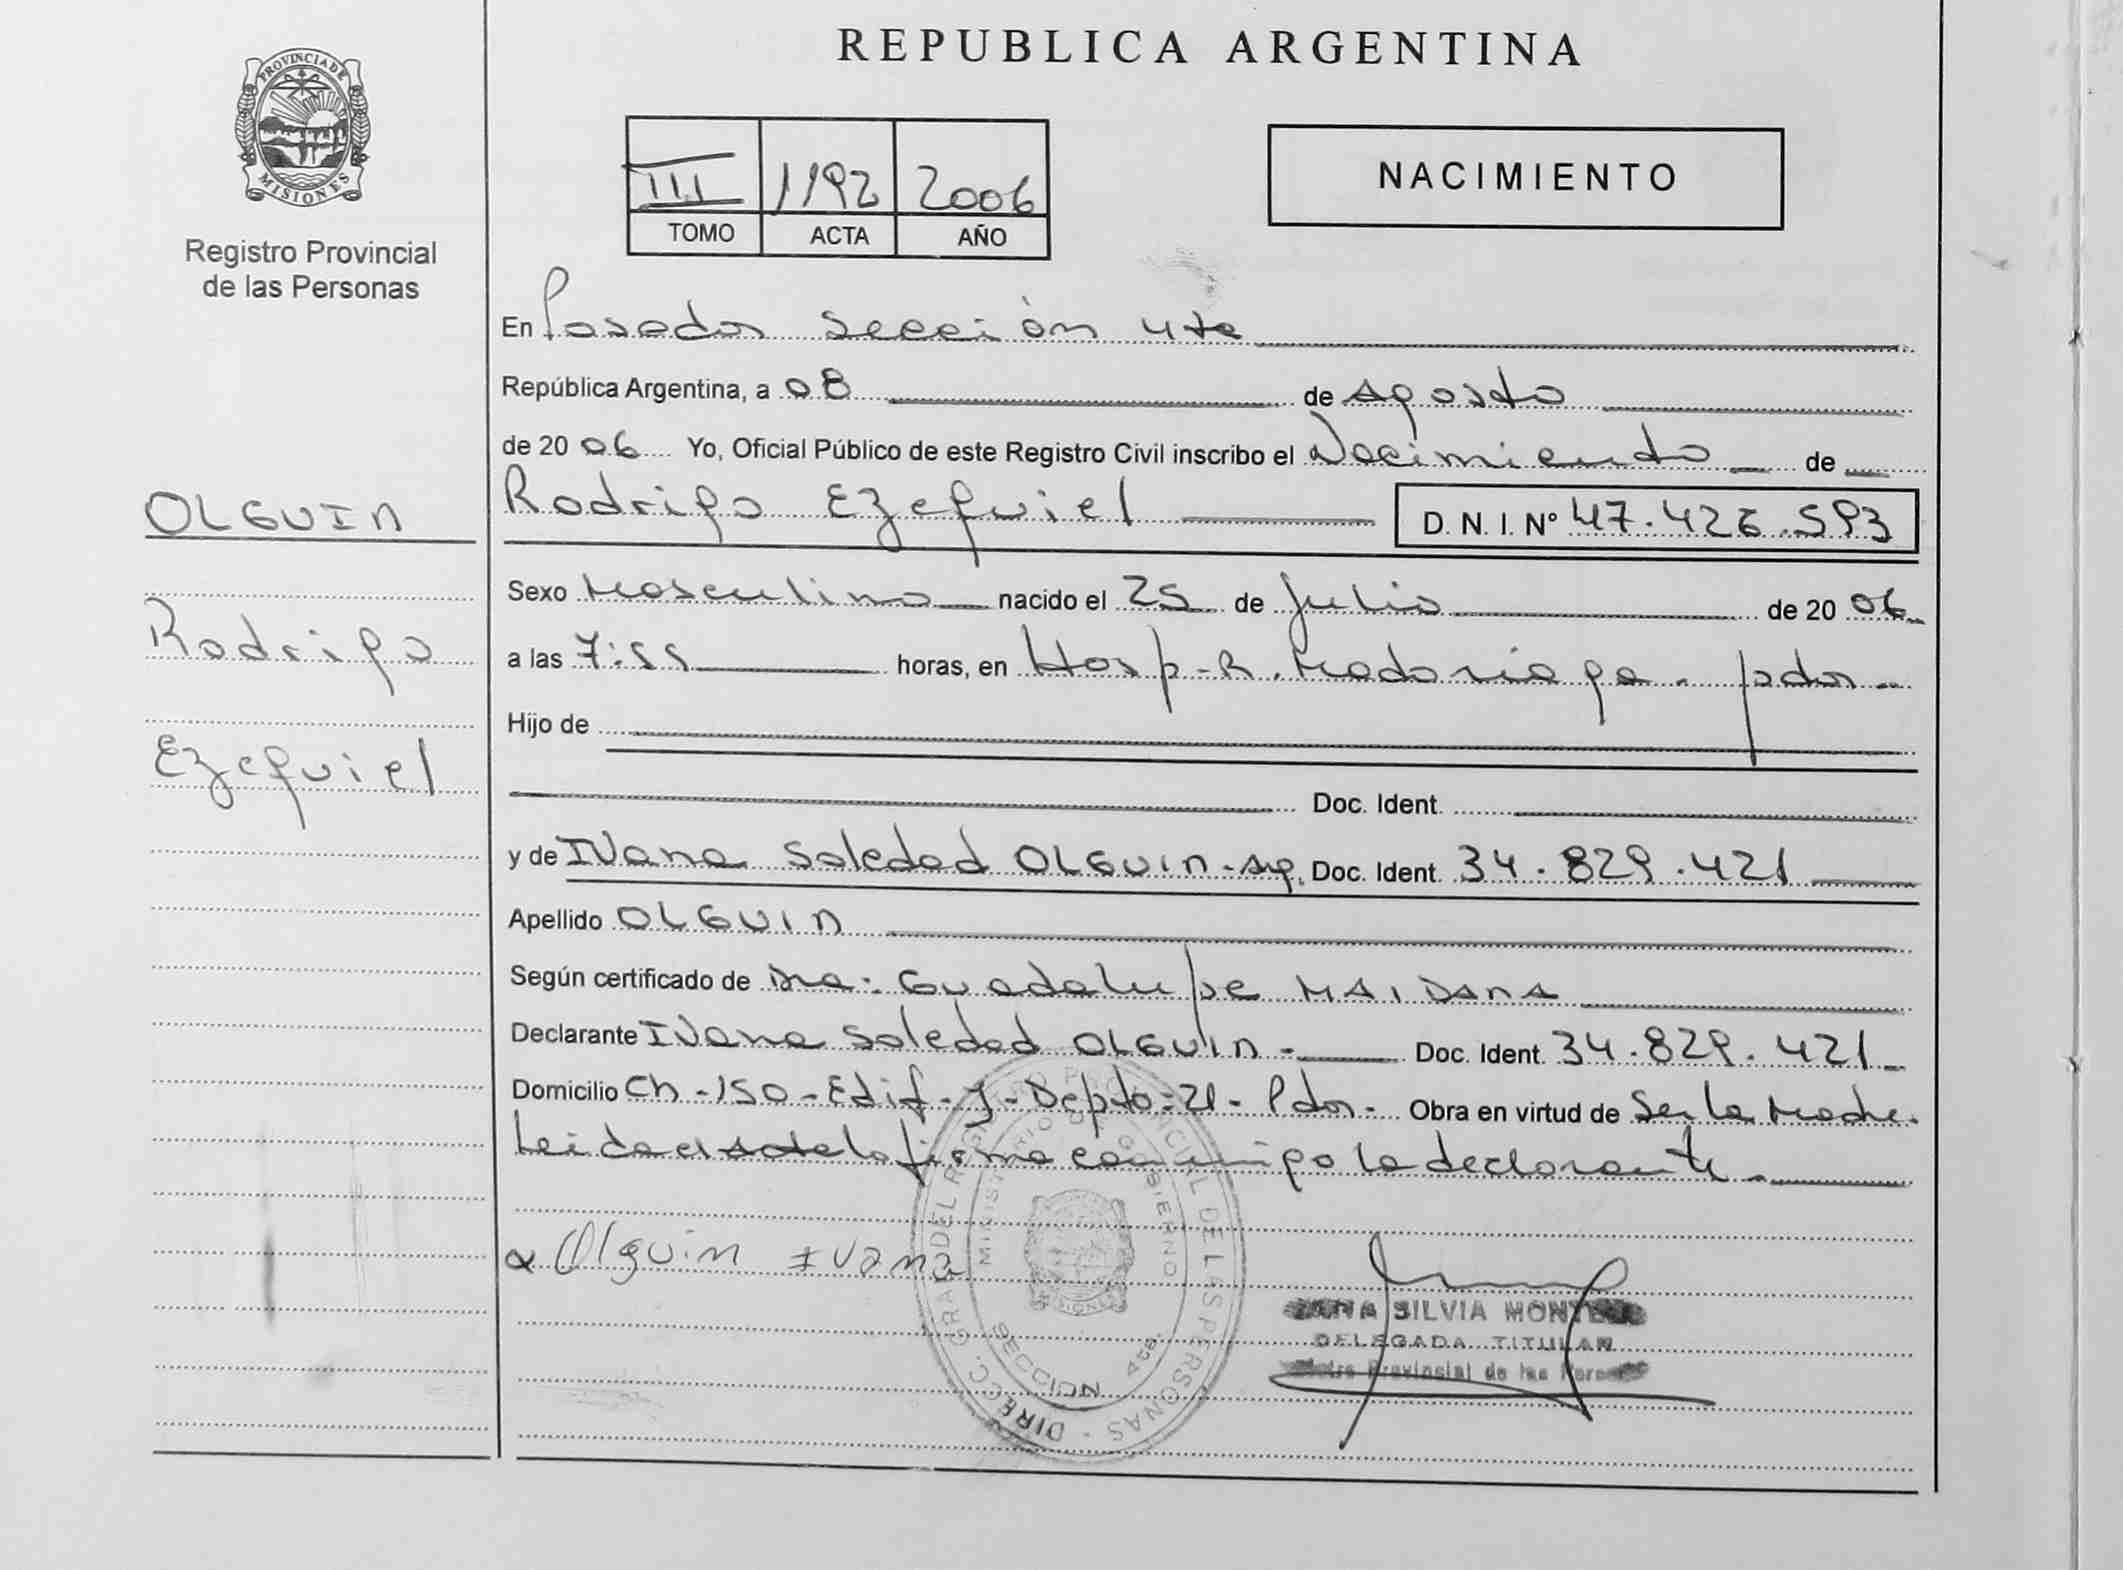 REPUBLICA ARGENTINA
PROVINCIA DE MISIONES
Registro Provincial
de las Personas
III 1192 2006
TOMO ACTA AÑO
NACIMIENTO
OLGUIN
Rodrigo
Ezequiel
En Posadas sección 4ta
República Argentina, a 08 de Agosto
de 2006 Yo, Oficial Público de este Registro Civil inscribo el Nacimiento de
Rodrigo Ezequiel D. N. I. Nº 47.426.593
Sexo Masculino nacido el 25 de Julio de 2006
a las 7:55 horas, en Hosp-R. Madariaga - pdas -
Hijo de
Doc. Ident.
y de Ivana Soledad OLGUIN - Arg. Doc. Ident. 34.829.421
Apellido OLGUIN
Según certificado de Dra: Guadalupe MAIDANA
Declarante Ivana Soledad OLGUIN - Doc. Ident. 34.829.421
Domicilio Ch-150-Edif-J-Depto:21-Pdas- Obra en virtud de Ser la Madre.
Leida el acta la firma conmigo la declarante
Olguin Ivana
DIRECC. GRAL. DEL REGISTRO PROVINCIAL DE LAS PERSONAS
MINISTERIO DE GOBIERNO
SECCION 4ta.
SILVIA
DELEGADA TITULAR
Provincial de las